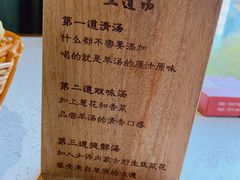 三道汤
第一道清汤
什么都不需要添加
喝的就是羊汤的原汁原味
第二道双味汤
加上葱花和香菜
品尝羊汤的清香口感
第三道提鲜汤
加入少许内蒙古野生韭菜花
感受来自草原的味道